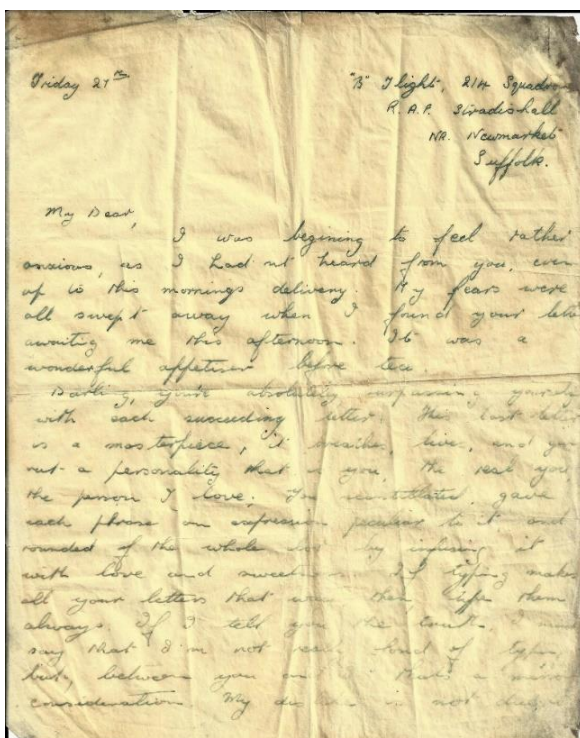 Friday 27th
"B" Flight, 214 Squadron
R.A.F. Stradishall
NR. Newmarket
Suffolk.
My Dear,
I was begining to feel rather
anxious, as I had nt heard from you, even
up to this mornings delivery. My fears were
all swept away when I found your
awaiting me this afternoon. It was a
wonderful appetiser before tea.
Darling, you're absolutely surpassing yourself
with each succeeding letter. This last letter
is a masterpiece, it breathes, lives, and
out a personality that is you, the real you
the person I love. You gave
each phrase an expression peculiar to it and
rounded of the whole by infusing it
with love and sweetness. If typing makes
all your letters that way then them
always. If I tell you the truth I must
say that I'm not fond of typing
but, between you and I that's a minor
consideration. My is not